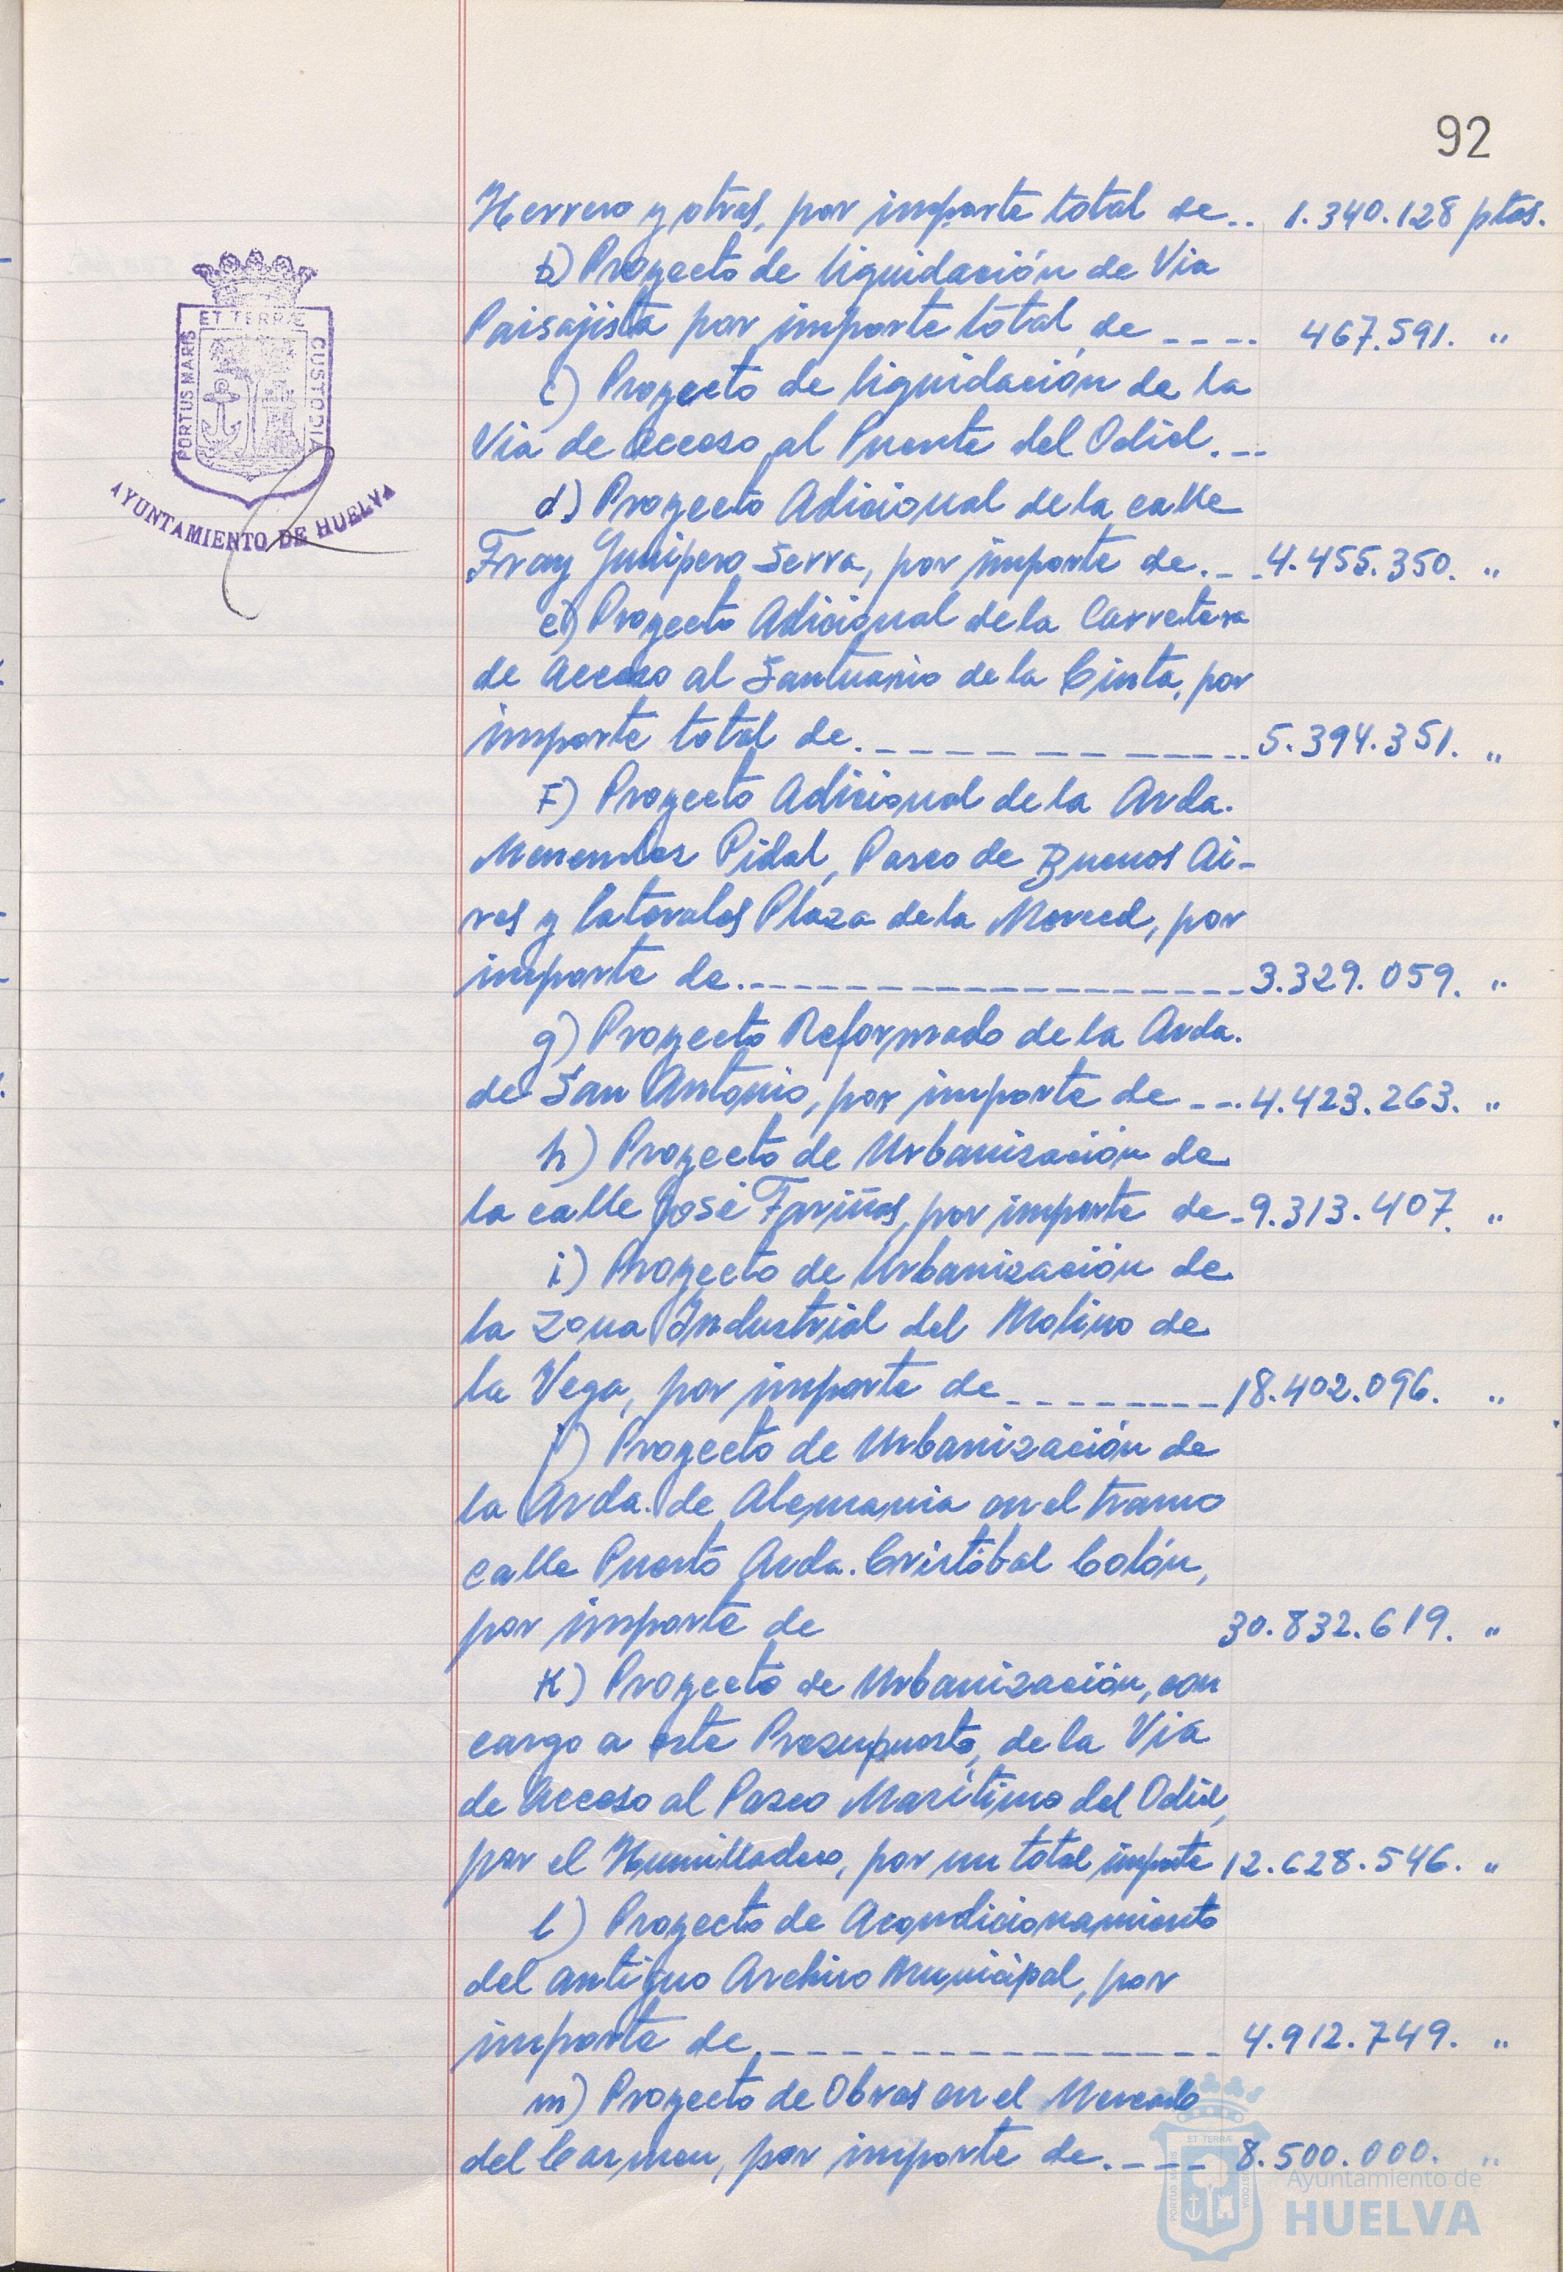 92
Herrero y otras, por importe total de.. 1.340.128 ptas.
b) Proyecto de liquidación de Via
Paisajista por importe total de ---- 467.591. "
c) Proyecto de liquidación de la
Via de acceso al Puente del Odiel.--
d) Proyecto Adicional de la calle
Fray Junipero Serra, por importe de.-- 4.455.350. "
e) Proyecto Adicional de la Carretera
de acceso al Santuario de la Cinta, por
importe total de.------------ 5.394.351. "
F) Proyecto Adicional de la Avda.
Menendez Pidal, Paseo de Buenos Ai-
res y laterales Plaza de la Merced, por
importe de.------------------ 3.329.059. "
g) Proyecto Reformado de la Avda.
de San Antonio, por importe de --- 4.423.263. "
h) Proyecto de Urbanización de
la calle José Fariñas, por importe de- 9.313.407. "
i) Proyecto de Urbanización de
la Zona Industrial del Molino de
la Vega, por importe de --------- 18.402.096. "
j) Proyecto de Urbanización de
la Avda. de Alemania en el tramo
calle Puerto Avda. Cristóbal Colón,
por importe de 30.832.619. "
K) Proyecto de Urbanización, con
cargo a este Presupuesto, de la Via
de Acceso al Paseo Marítimo del Odiel,
por el Humilladero, por un total importe 12.628.546. "
l) Proyecto de Acondicionamiento
del antiguo Archivo Municipal, por
importe de.--------------- 4.912.749. "
m) Proyecto de Obras en el Mercado
del Carmen, por importe de.---- 8.500.000. "
PORTUS MARIS ET TERRÆ CUSTODIA
AYUNTAMIENTO DE HUELVA
PORTUS MARIS ET TERRÆ CUSTODIA
Ayuntamiento de
HUELVA